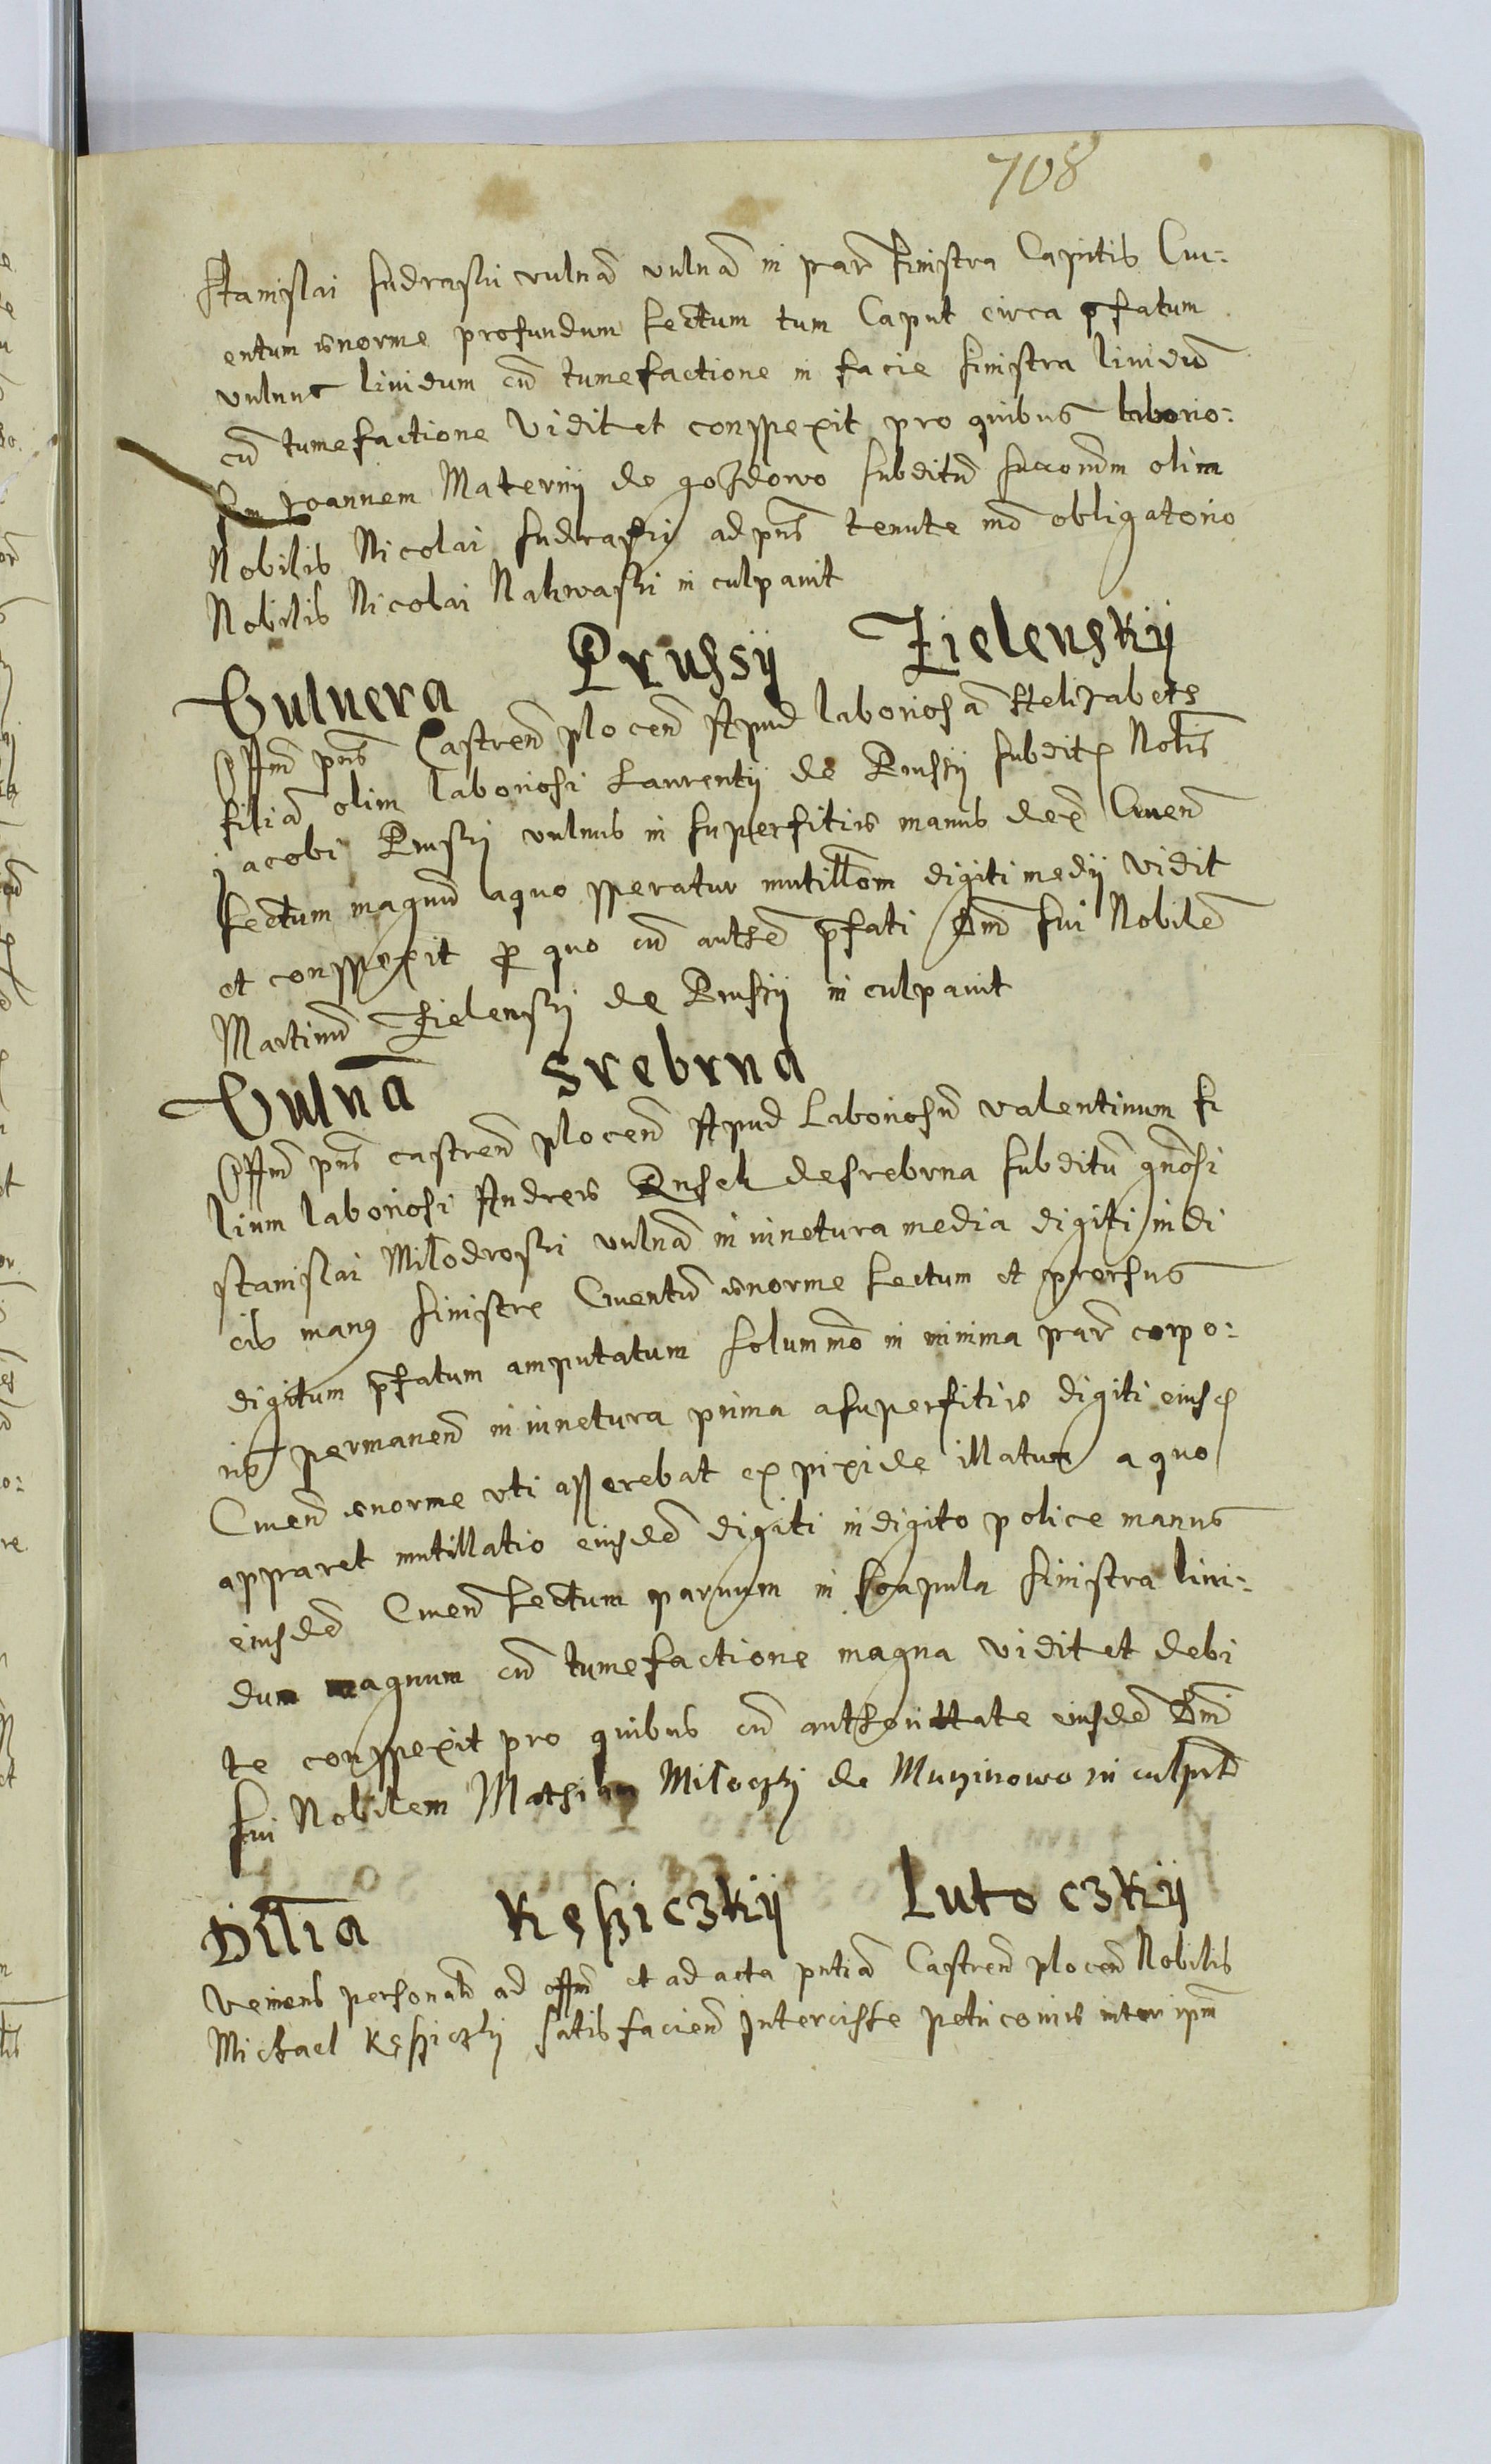 708
Stanislai Sudraski vulnā vulnā in par̄ sinistra Capitis Cru:
entum enorme profundum sectum tum Caput circa pfatum
vulnus lividum cū tumefactione in facie sinistra lividū
cū tumefactione vidit et conspexit pro quibus laborio:
sum Joannem Materny de gozdowo subditū
Nobilis Nicolai Sudraski ad pn̄s tenute mō obligatorio
Nobilis Nicolai Nakwaski in culpavit
Vulnera Prussy Zielensky
Offm̄ pn̄s Castren̄ plocen̄ Apud laboriosā Helizabeth
filiā olim laboriosi Laurentii de Prussy subdite Nobīs
jacobi Pruski vulnus in superfitie manus dex̄ Cruen̄
sectum magnū aquo speratur mutillōm digiti medii vidit
et conspexit p quo cū authē pfati Dn̄i sui Nobilē
Martinū Zielenski de Prussy in culpavit
Vulnā Srebrna
Offm̄ pn̄s castren̄ plocen̄ Apud Laboriosū valentinum fi
lium laboriosi Andree Dusek desrebrna subditū gnōsi
stanislai Milodroski vulnā in iunctura media digiti indi
cis manus sinistre Cruentū enorme sectum et prorsus
digitum pfatum amputatum solummō in minima par̄ corpo:
ris permanen̄ in iunctura prima a superfitie digiti eiusd
Cruen̄ enorme uti asserebat ex pixide illatum a quo
apparet mutillatio eiusdē digiti in digito police manus
eiusdē Cruen̄ sectum parvum in scapula sinistra livi:
dum magnum cū tumefactione magna vidit et debi
te conspexit pro quibus cū authoritate eiusdē Dn̄i
sui Nobilem Mathiam Miloczki de Muzinowo in culpavit
Dilīa Kęsiczky Lutoczky
Veniens personalr̄ ad offm̄ et ad acta pntiā Castren̄ plocen̄ Nobilis
Michael Kęsiczki satisfacien̄ Intercisse inter ipm̄